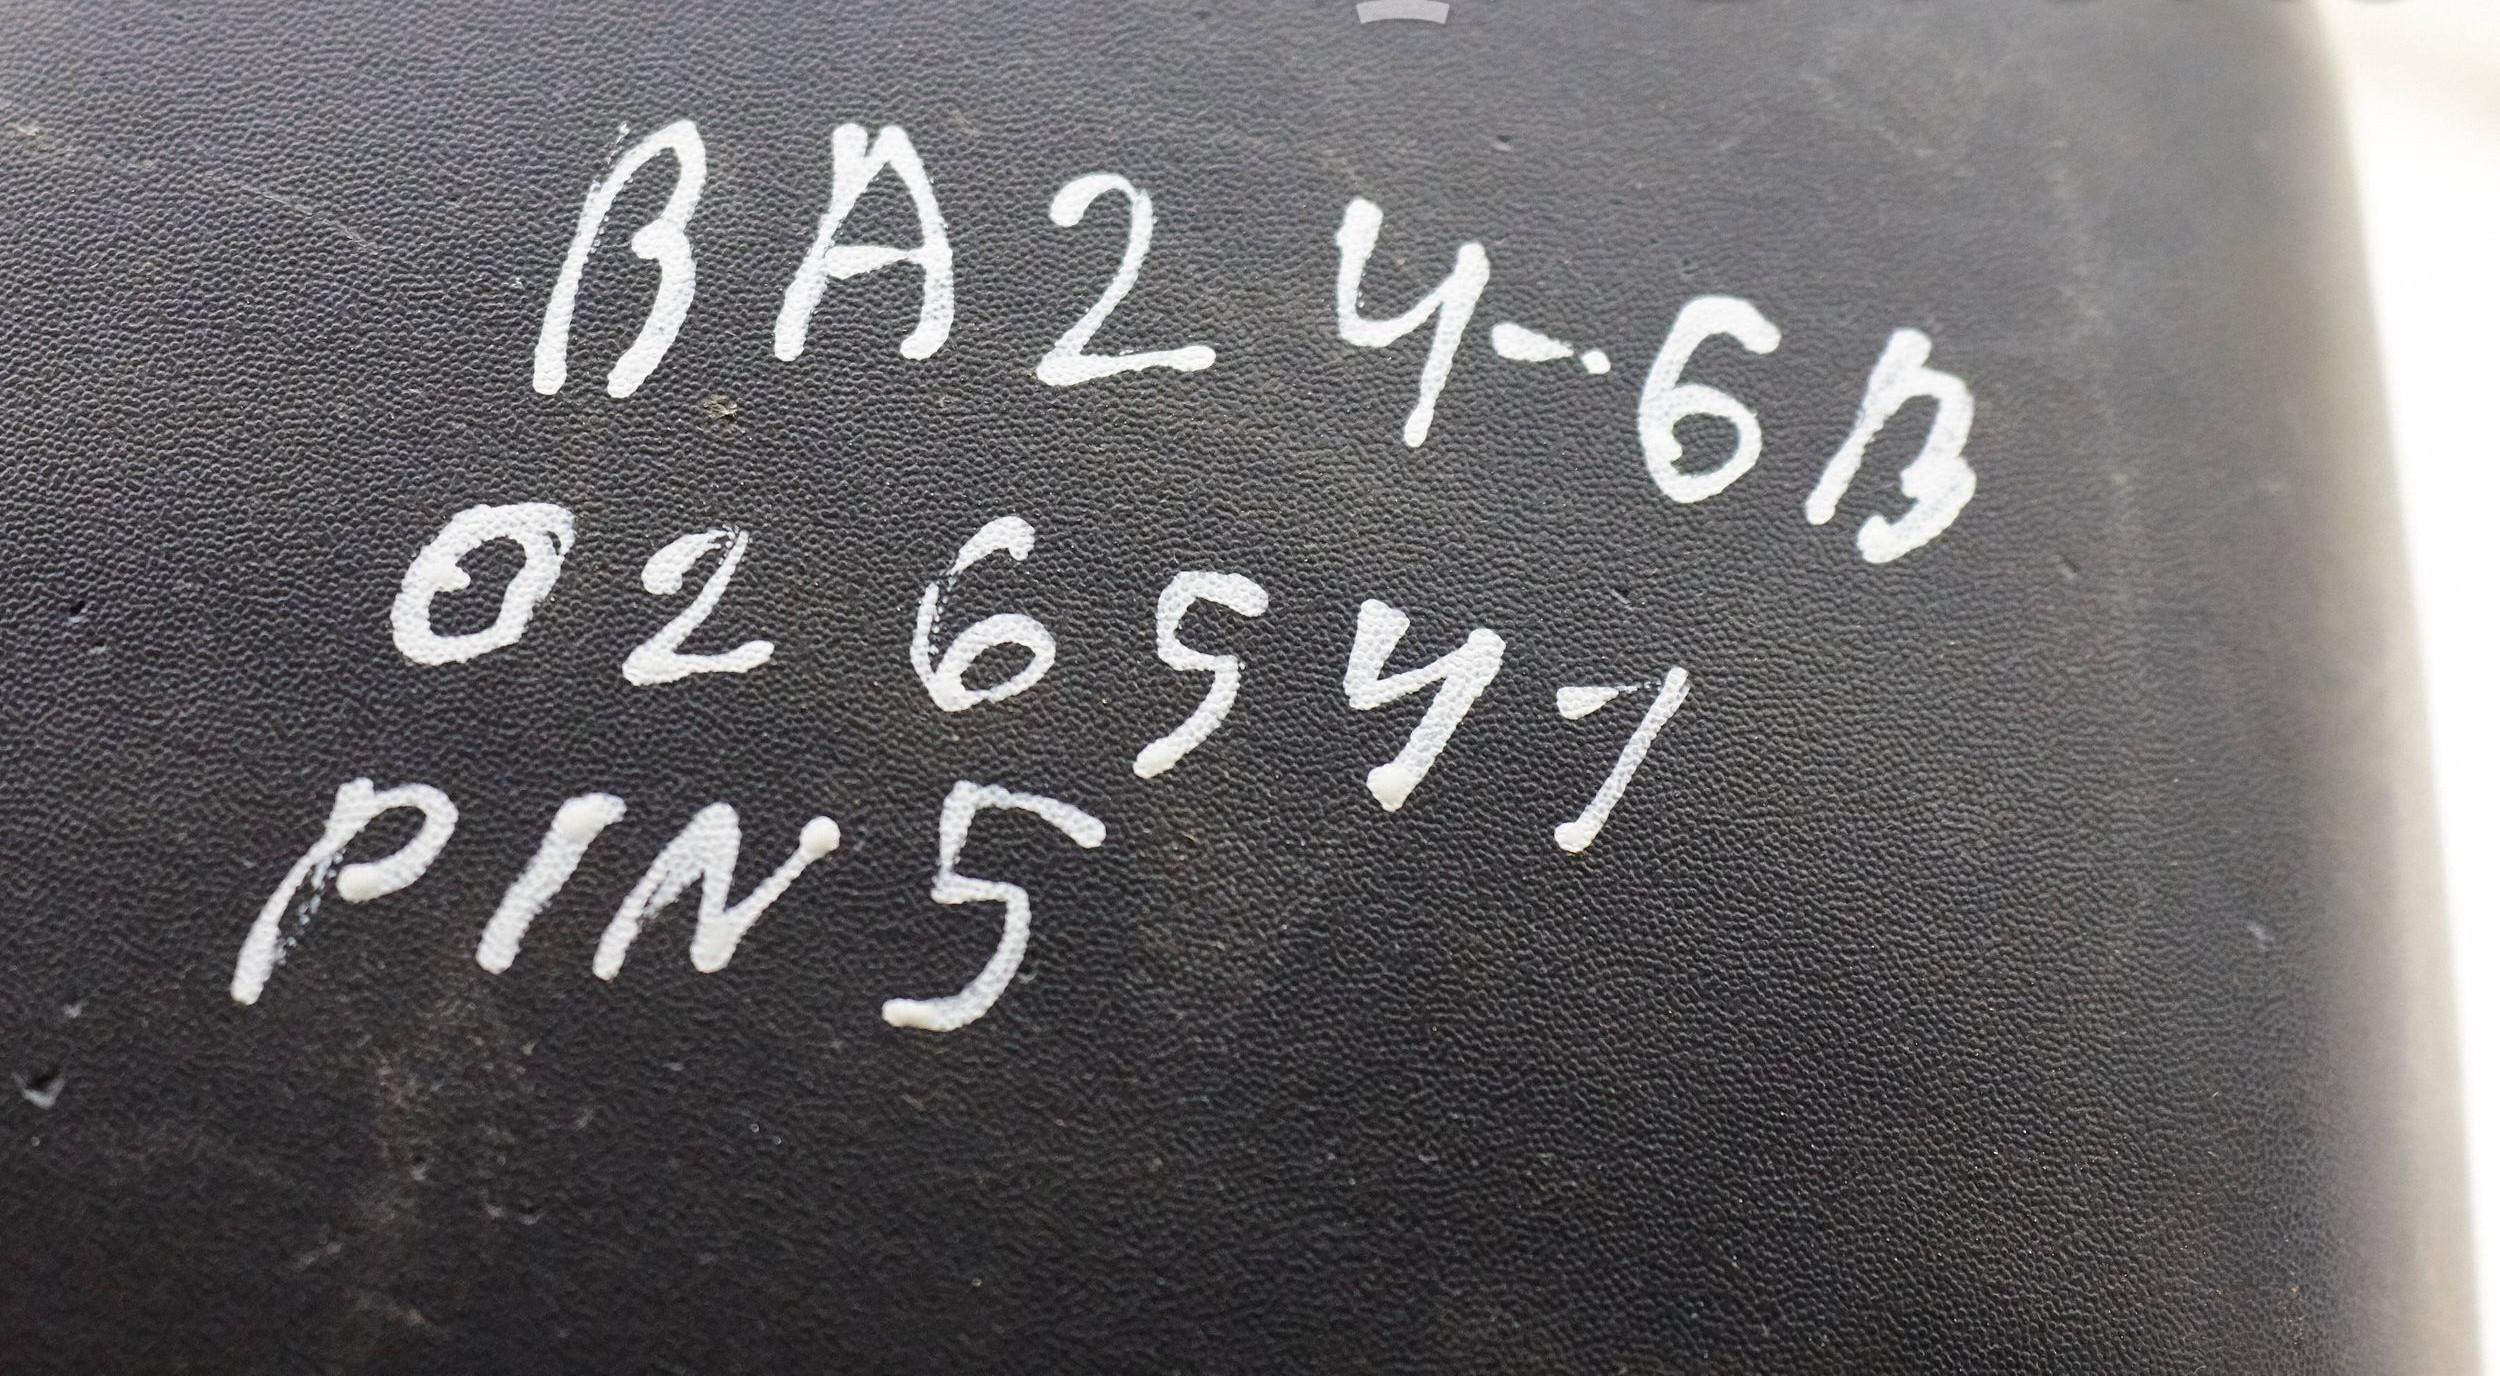 BA24-6B
02654-1
PIN5